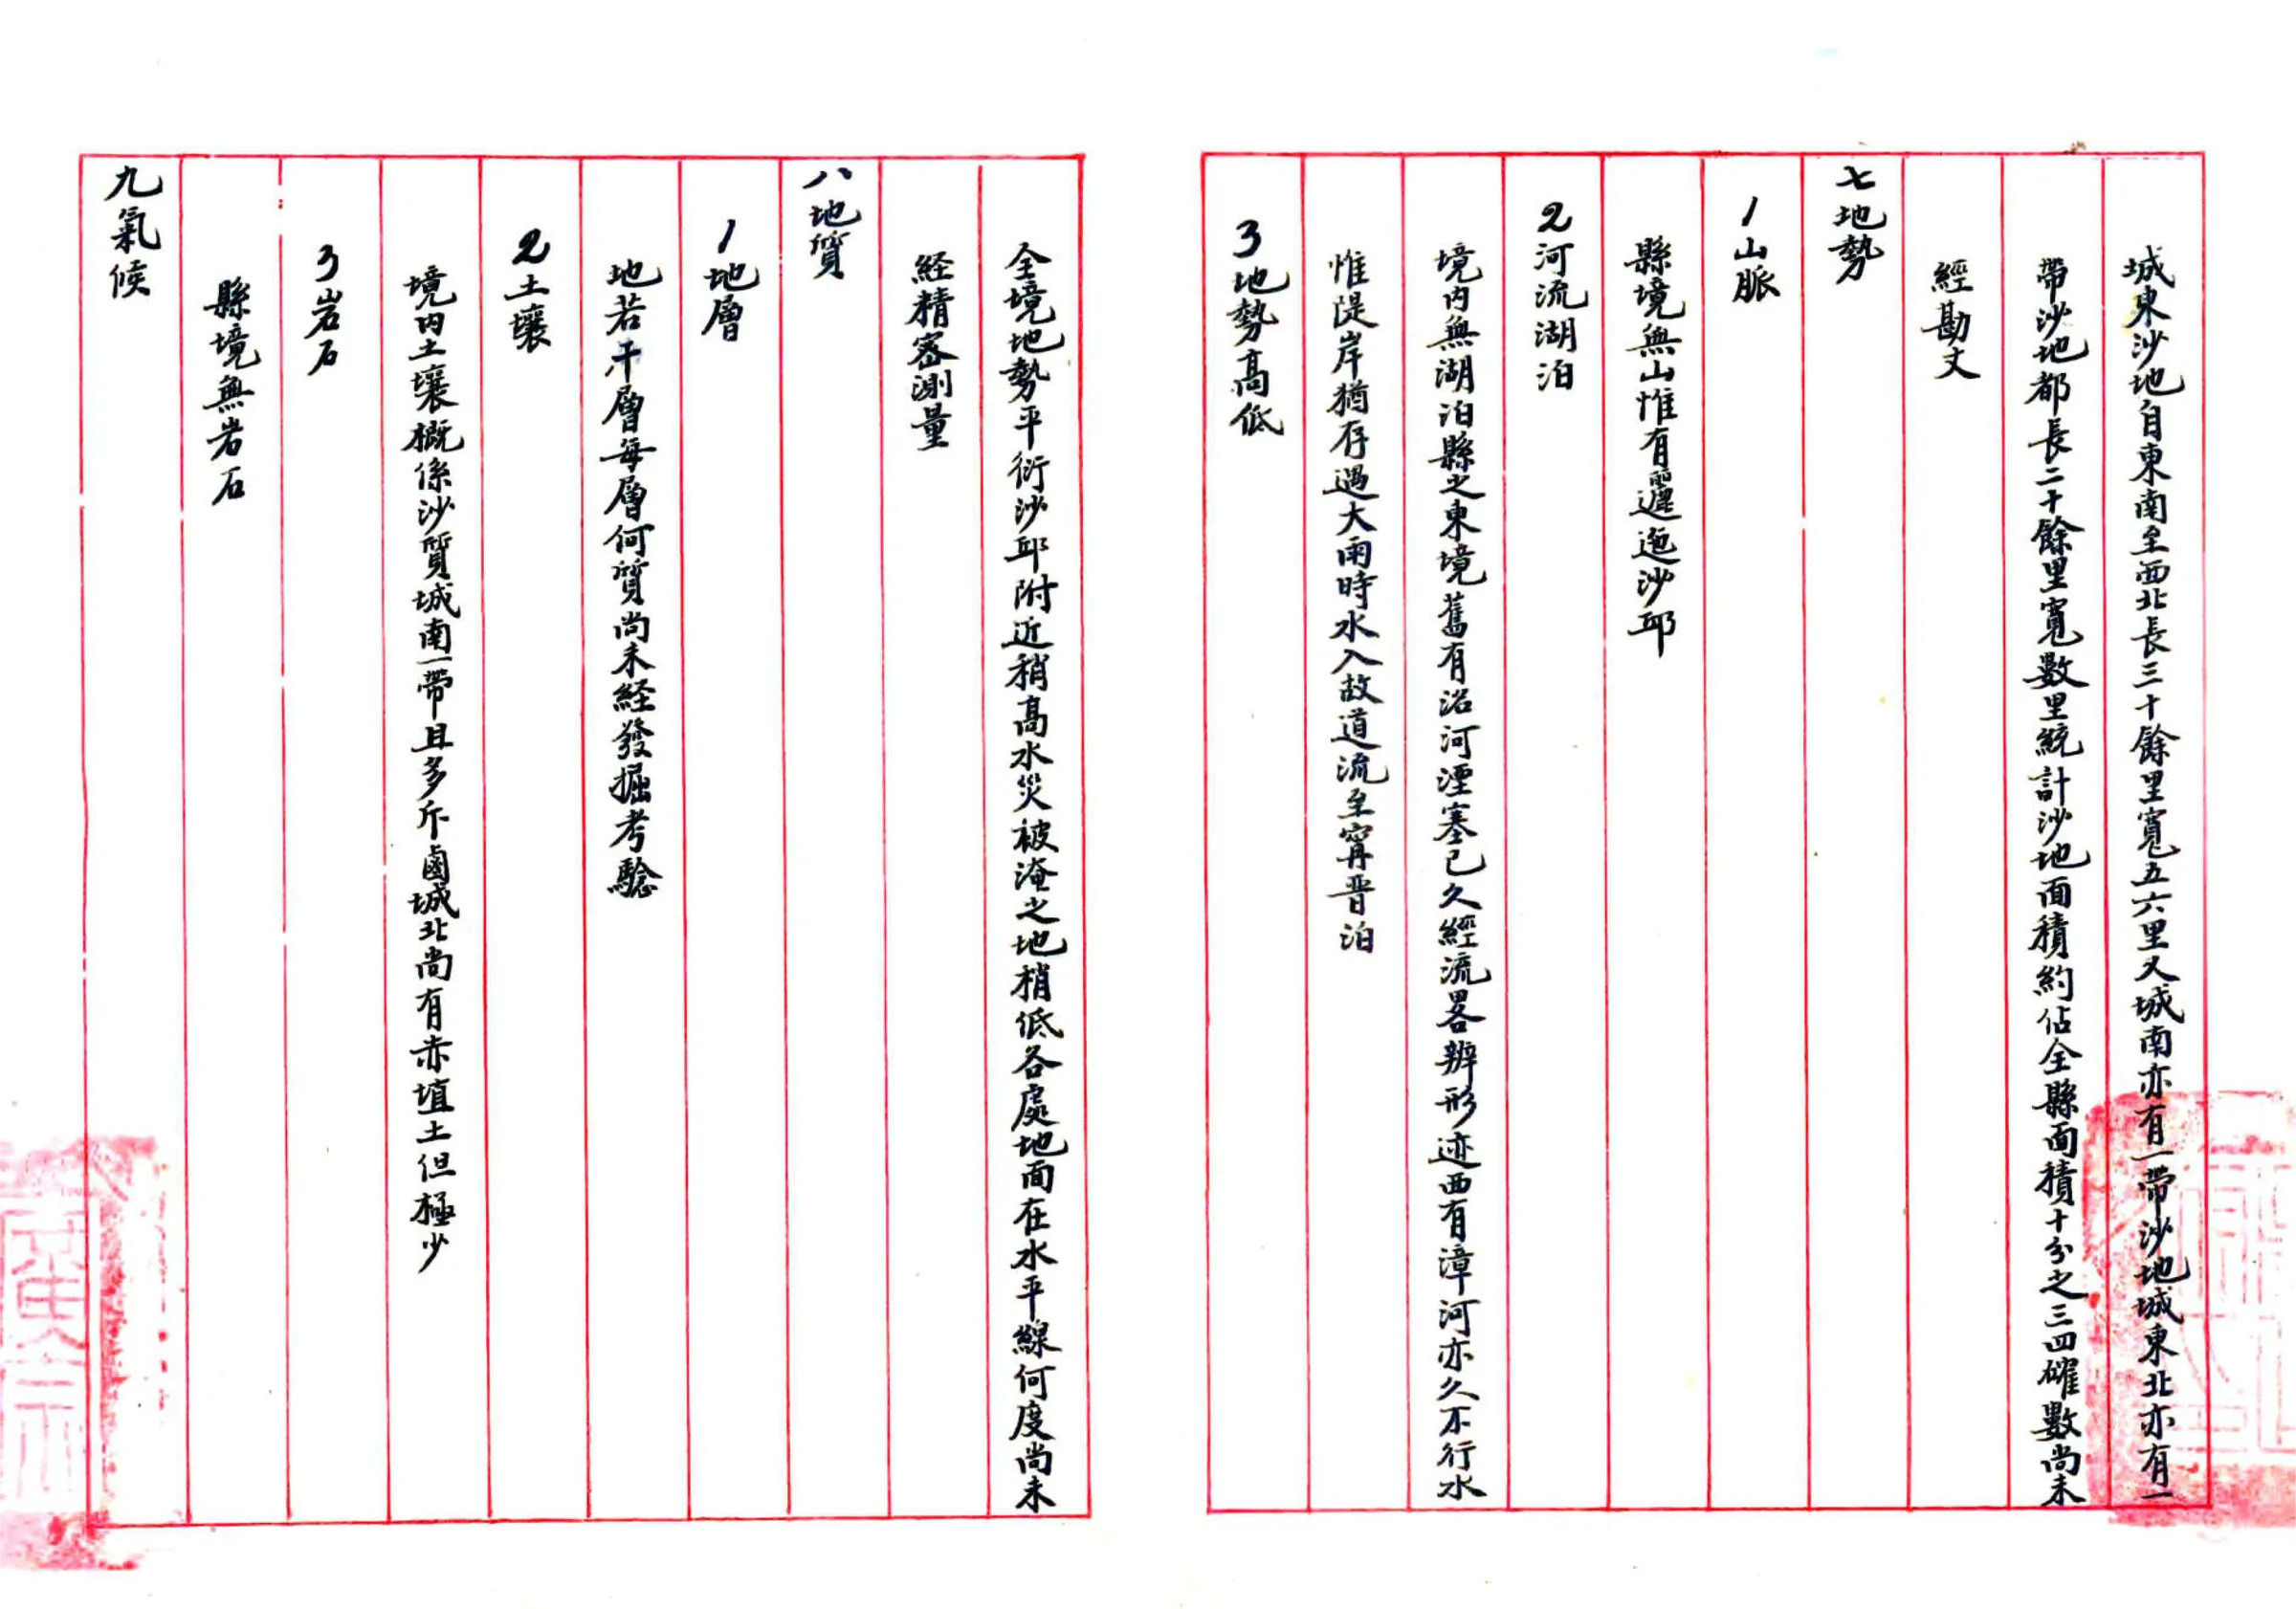 城東沙地自東南至西北長三十餘里寬五六里又城南亦有一帶沙地城東北亦有一
帶沙地都長二十餘里寬數里統計沙地面積約佔全縣面積十分之三四確數尚未
經勘丈
七地勢
1山脈
縣境無山惟有邐迤沙邱
2河流湖泊
境内無湖泊縣之東境舊有洺河湮塞已久經流畧辨形迹西有漳河亦久不行水
惟隄岸猶存遇大雨時水入故道流至甯晋泊
3地勢高低
全境地勢平衍沙邱附近稍高水災被淹之地稍低各處地面在水平線何度尚未
経精密測量
八地質
1地層
地若干層每層何質尚未経發掘考驗
2土壤
境内土壤概係沙質城南一帶且多斥鹵城北尚有赤埴土但極少
3岩石
縣境無岩石
九氣候